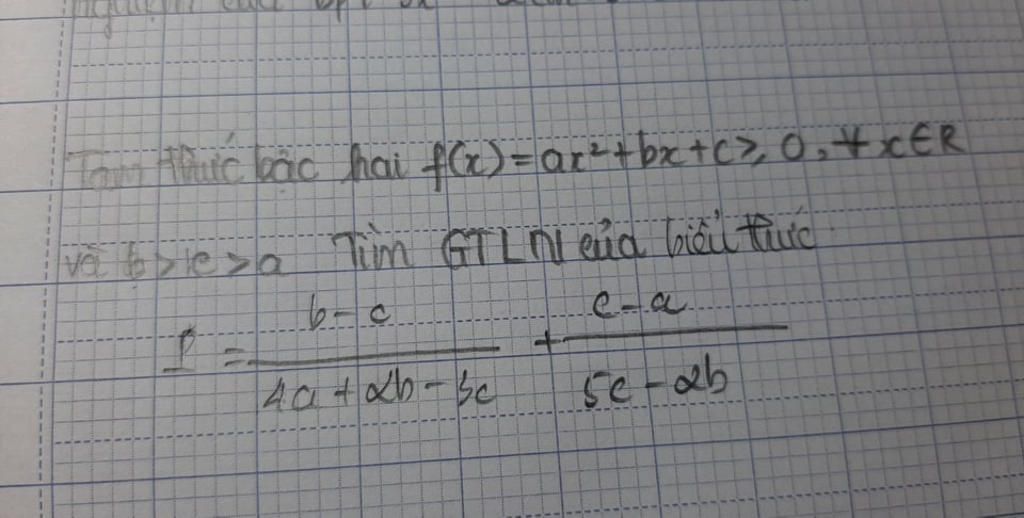 Tam thức bậc hai f(x) = ax² + bx + c ≥ 0, ∀ x ∈ R
và b > c > a Tìm GTLN của biểu thức
P = \frac{b - c}{4a + 2b - 3c} + \frac{c - a}{5c - 2b}